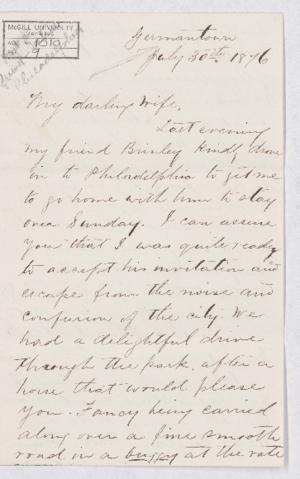 McGILL UNIVERSITY
ACC. NO. 1819
9
Philadelphia
Germantown
July 30th 1876
My darling Wife,
Last evening
my friend Brinley drove
in to Philadelphia to get me
to go home with him to stay
over Sunday. I can assure
you that I was quite ready
to accept his invitation and
escape from the noise and
confusion of the city. We
had a delightful drive
through the park, after a
horse that would please
you. Fancy being carried
along over a fine smooth
road in a buggy at the rate